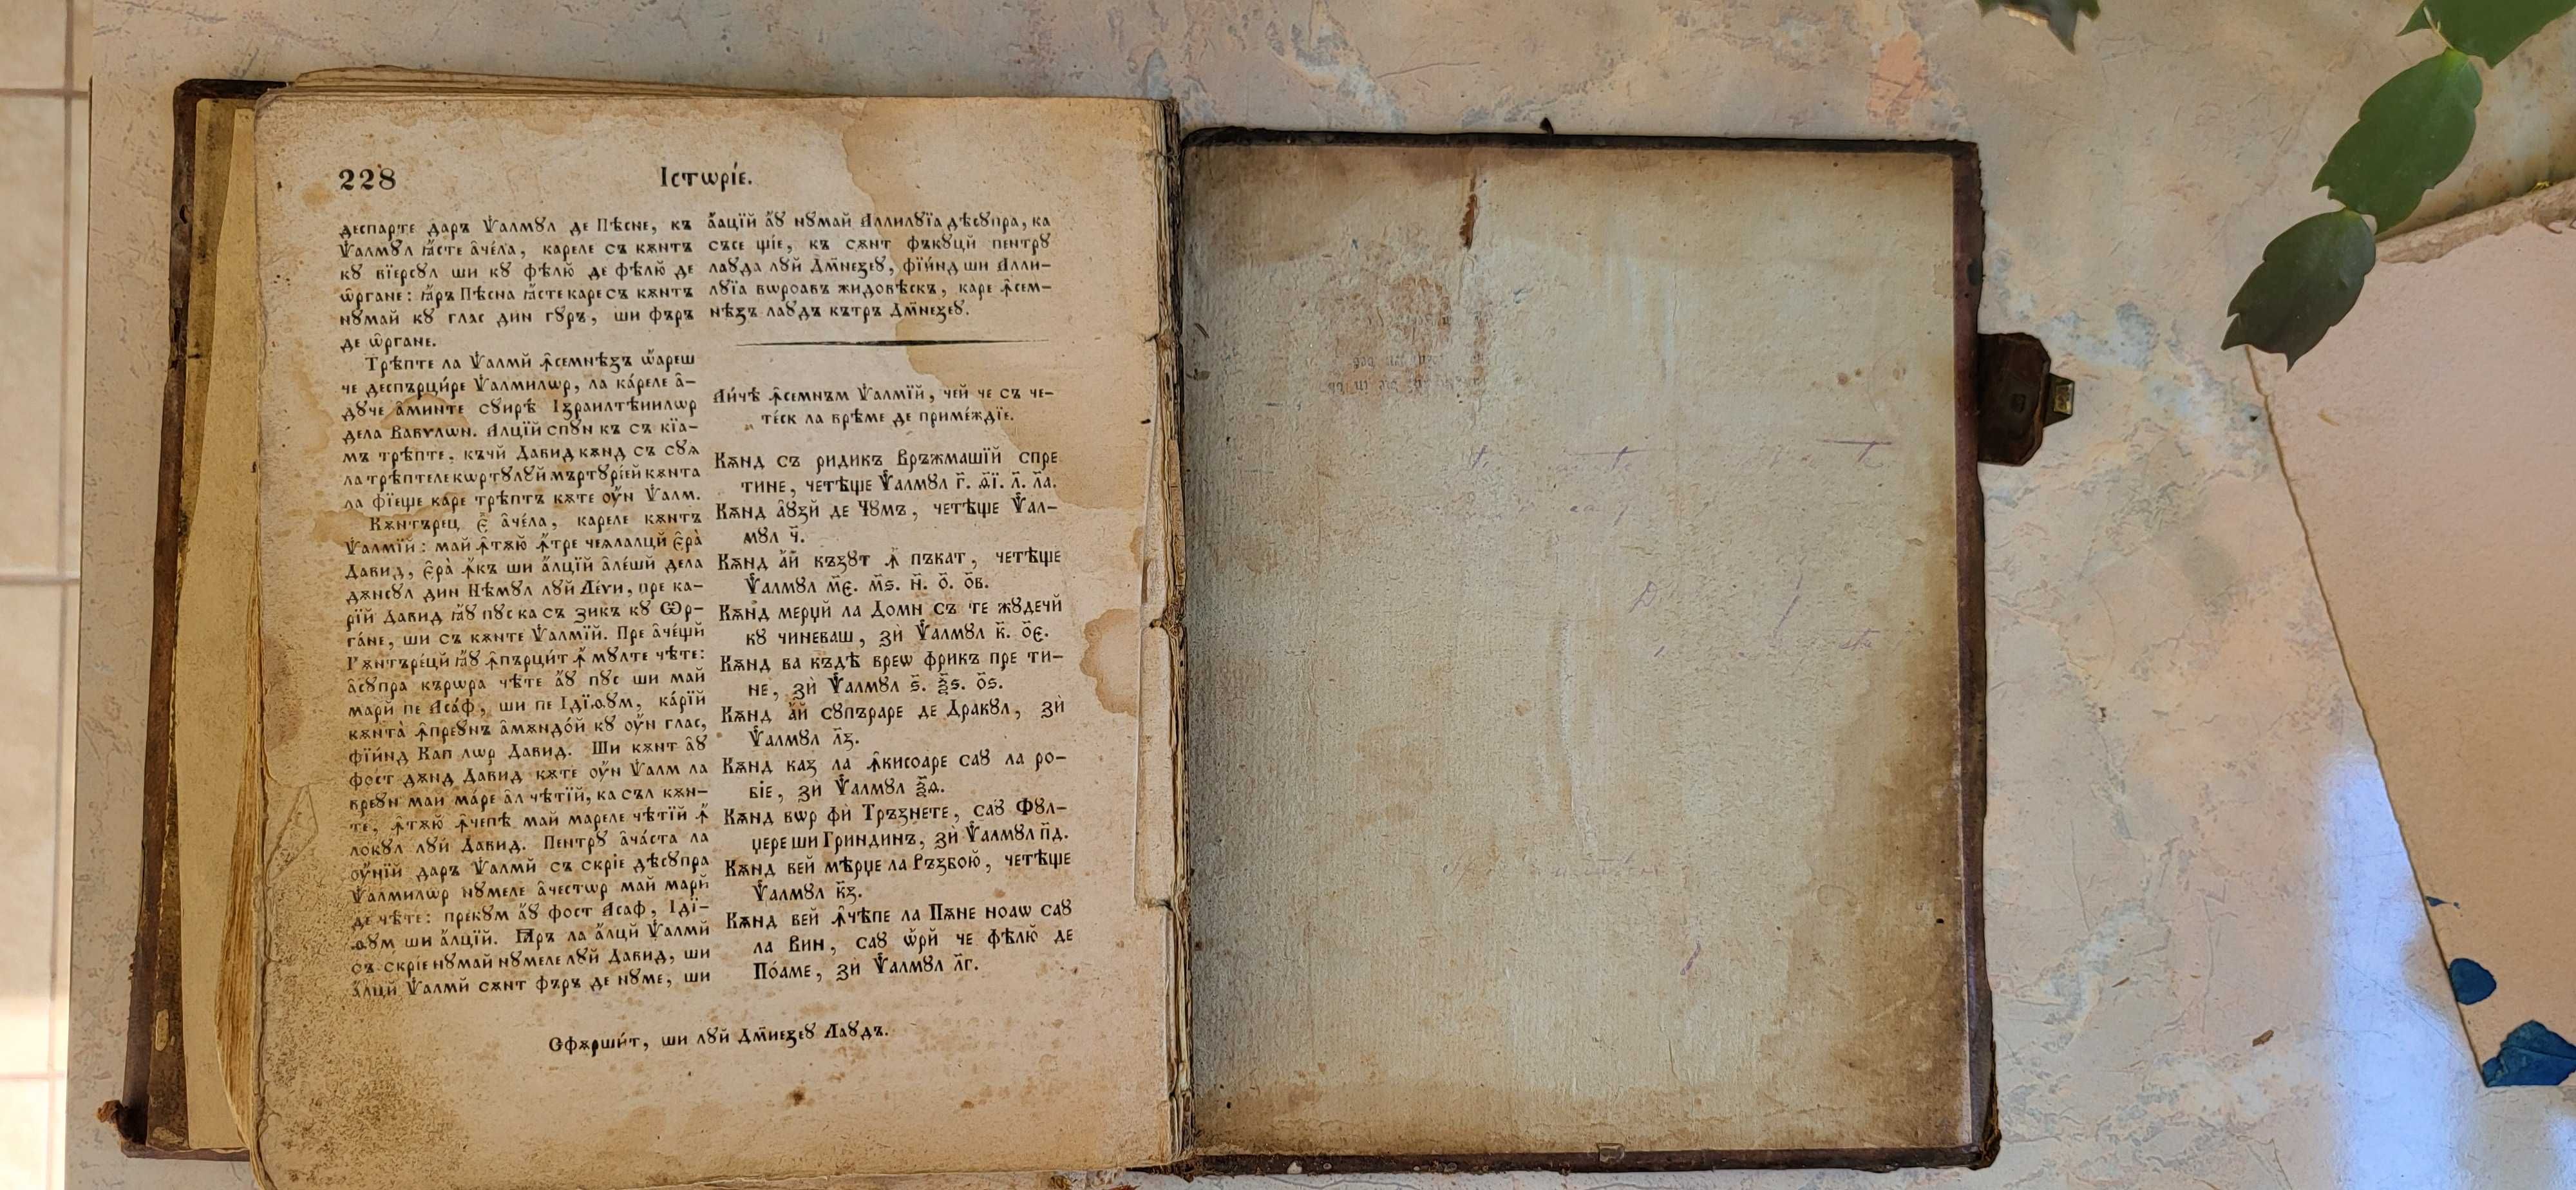 228
Істѡріе.
деспарте даръ Ѱалмꙋл де Пѣсне, къ
Ѱалмꙋл ꙗ҆́сте а҆че́ла, кареле съ кѫнтъ
кꙋ вїерсꙋл ши кꙋ фѣлю̆ де фѣлю̆ де
ѡ҆ргане: ꙗ҆́ръ Пѣсна ꙗ҆́сте каре съ кѫнтъ
нꙋмай кꙋ глас дин гꙋръ, ши фъръ
де ѡ҆ргане.
Трѣпте ла Ѱалмй ꙟ҆семнѣꙁъ ѡ҆ареш
че деспърци́ре Ѱалмилѡр, ла ка́реле а҆-
дꙋче а҆минте сꙋирѣ Іꙁраилтѣиилѡр
дела Вавѵлѡн. Алцїй спꙋн къ съ кїа-
мъ трѣпте, къчй Давид кѫнд съ сꙋѧ
ла трѣптеле кѡртꙋлꙋй мъртꙋрі́ей кѫнта
ла фїеще каре трѣптъ кѫте оу҆́н Ѱалм.
Кѫнтърец є҆ а҆че́ла, кареле кѫнтъ
Ѱалмїй: май ꙟ҆тѫю̆ ꙟ҆́тре чеѧлалцй є҆ра̀
Давид, є҆ра̀ ꙟ҆́къ ши а҆́лцїй а҆ле́шй дела
дѫнсꙋл дин Нѣмꙋл лꙋй Ле́ѵи, пре ка-
рїй Давид ꙗ҆́ꙋ пꙋс ка съ ꙁикъ кꙋ Ѡр-
га́не, ши съ кѫнте Ѱалмїй. Пре а҆че́щй
Кѫнтъре́цй ꙗ҆́ꙋ ꙟ҆пърци́т ꙟ҆́ мꙋлте чѣте:
а҆сꙋпра кърѡра чѣте а҆́ꙋ пꙋс ши май
марй пе Аса́ф, ши пе Ідїѳꙋм, ка́рїй
кѫнта̀ ꙟ҆преꙋнъ а҆мѫндо́й кꙋ оу҆́н глас,
фїи́нд Кап лѡр Давид. Ши кѫнт а҆́ꙋ
фост дѫнд Давид кѫте оу҆́н Ѱалм ла
вреꙋн май ма́ре а҆л чѣтїй, ка съл кѫн-
те, ꙟ҆тѫю̆ ꙟ҆чепѣ май мареле чѣтїй ꙟ҆́
локꙋл лꙋй Давид. Пентрꙋ а҆ча́ста ла
оу҆́нїй даръ Ѱалмй съ скріе дѣсꙋпра
Ѱалмилѡр нꙋмеле а҆честѡр май марй
де чѣте: прекꙋм а҆́ꙋ фост Асаф, Ідї-
ѳꙋм ши а҆́лцїй. Ꙗръ ла а҆́лцй Ѱалмй
съ скріе нꙋмай нꙋмеле лꙋй Давид, ши
а҆́лцй Ѱалмй сѫнт фъръ де нꙋме, ши
а҆́лцїй а҆́ꙋ нꙋмай Аллилꙋїа дѣсꙋпра, ка
съсе щіе, къ сѫнт фъкꙋцй пентрꙋ
лаꙋда лꙋй Дм҃неꙁеꙋ, фїи́нд ши Алли-
лꙋїа вѡроавъ жидовѣскъ, каре ꙟ҆сем-
нѣꙁъ лаꙋдъ кътръ Дм҃неꙁеꙋ.
Аи́чѣ ꙟ҆семнъм Ѱалмїй, чей че съ че-
те́ск ла врѣме де приме́ждїе.
Кѫнд съ ридикъ Връжмашїй спре
тине, четѣще Ѱалмꙋл г҃. а҃ї. л҃. л҃а.
Кѫнд а҆́ꙋꙁй де Чꙋмъ, четѣще Ѱал-
мꙋл ч҃.
Кѫнд а҆́й къꙁꙋт ꙟ҆́ пъкат, четѣще
Ѱалмꙋл м҃є. м҃ѕ. н҃. о҃. о҃в.
Кѫнд мерџй ла Домн съ те жꙋдечй
кꙋ чиневаш, ꙁѝ Ѱалмꙋл к҃. о҃є.
Кѫнд ва къдѣ вреѡ фрикъ пре ти-
не, ꙁѝ Ѱалмꙋл ѕ҃. ѯ҃ѕ. о҃ѕ.
Кѫнд а҆́й сꙋпъраре де Дракꙋл, ꙁѝ
Ѱалмꙋл л҃ꙁ.
Кѫнд каꙁ ла ꙟ҆кисоаре саꙋ ла ро-
біе, ꙁѝ Ѱалмꙋл ѯ҃ѧ.
Кѫнд вѡр фѝ Тръꙁнете, саꙋ Фꙋл-
џере ши Гриндинъ, ꙁѝ Ѱалмꙋл п҃д.
Кѫнд вей мѣрџе ла Ръꙁбою̆, четѣще
Ѱалмꙋл к҃ꙁ.
Кѫнд вей ꙟ҆чѣпе ла Пѫне ноаѡ саꙋ
ла Вин, саꙋ ѡ҆́рй че фѣлю̆ де
По́аме, ꙁѝ Ѱалмꙋл л҃г.
Сфѫрши́т, ши лꙋй Дм҃неꙁеꙋ Лаꙋдъ.